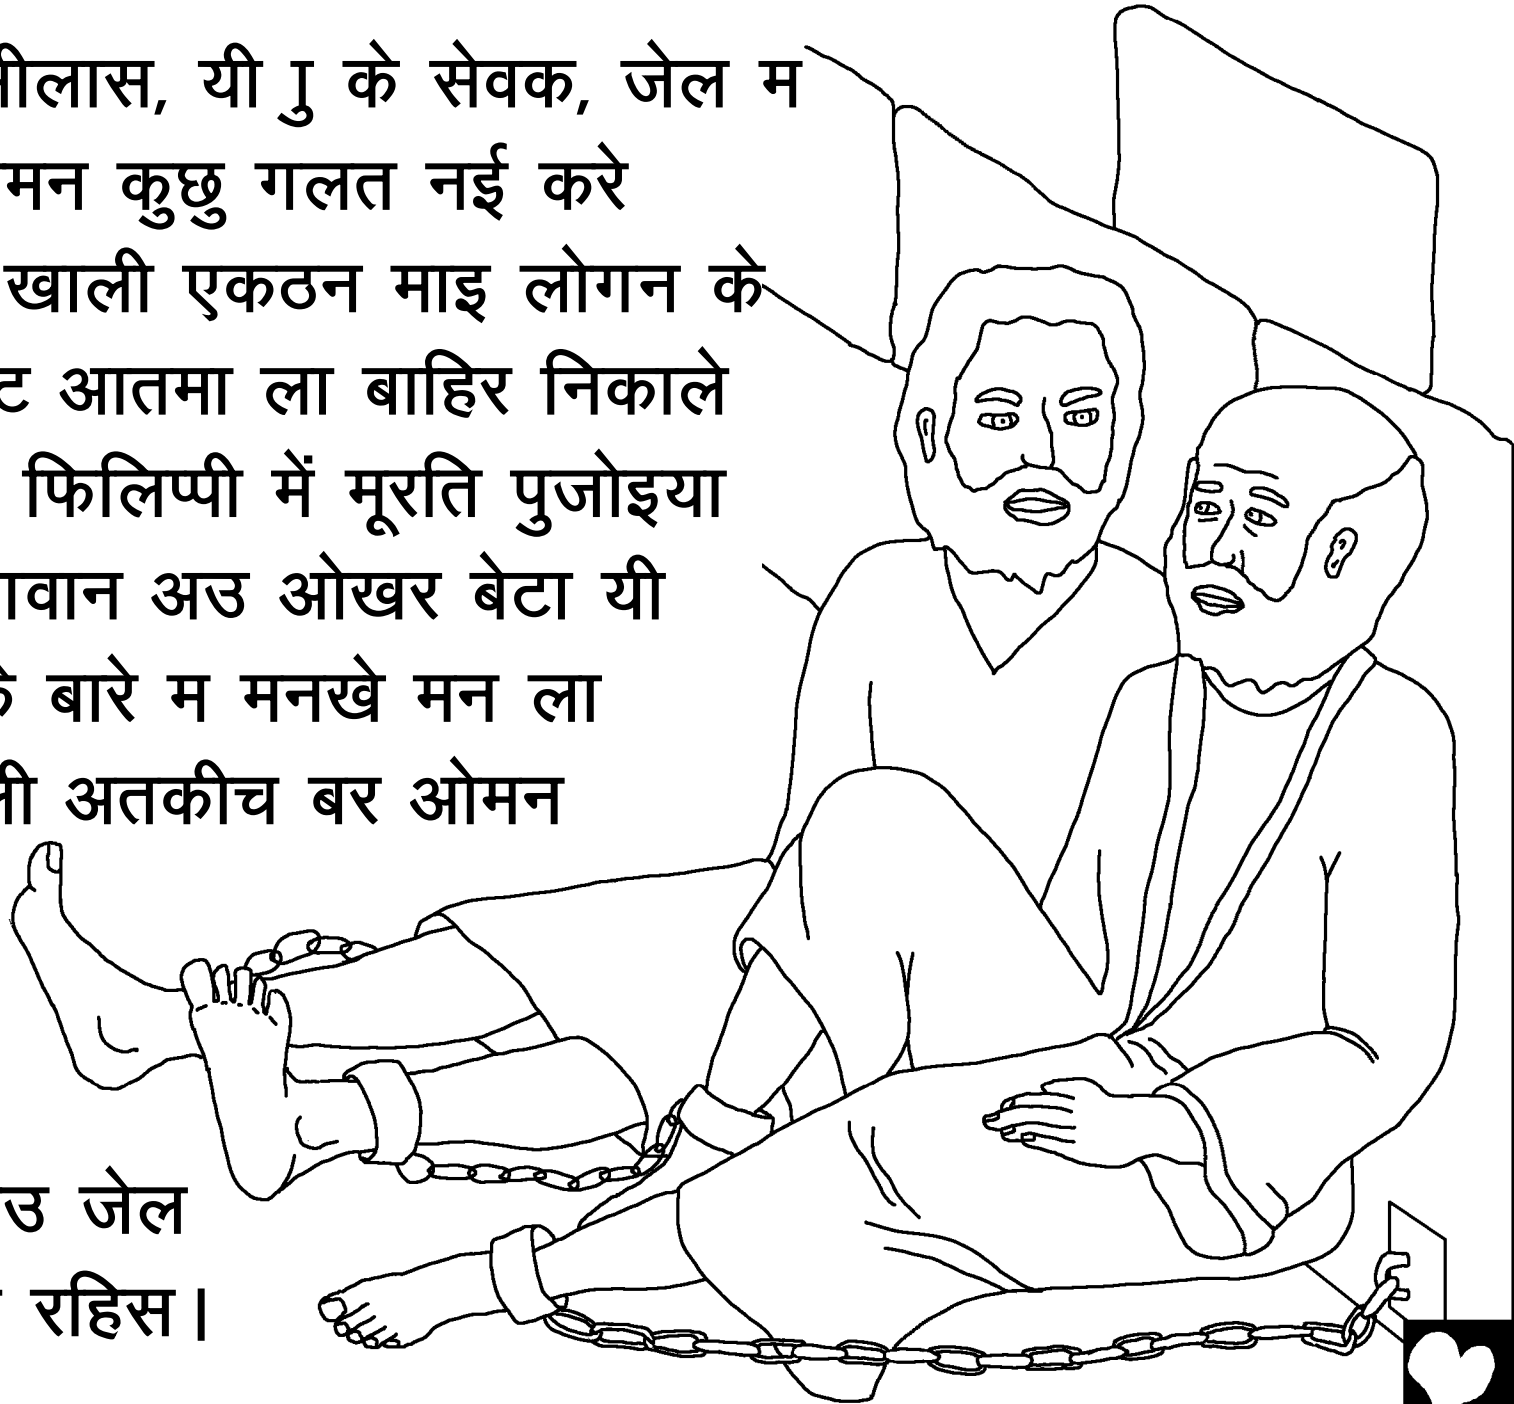 सीलास, यी ु के सेवक, जेल म
मन कुछु गलत नई करे
खाली एकठन माइ लोगन के
आतमा ला बाहिर निकाले
फिलिप्पी में मूरति पुजोइया
अउ ओखर बेटा यी
के बारे म मनखे मन ला
अतकीच बर ओमन
जेल
रहिस।